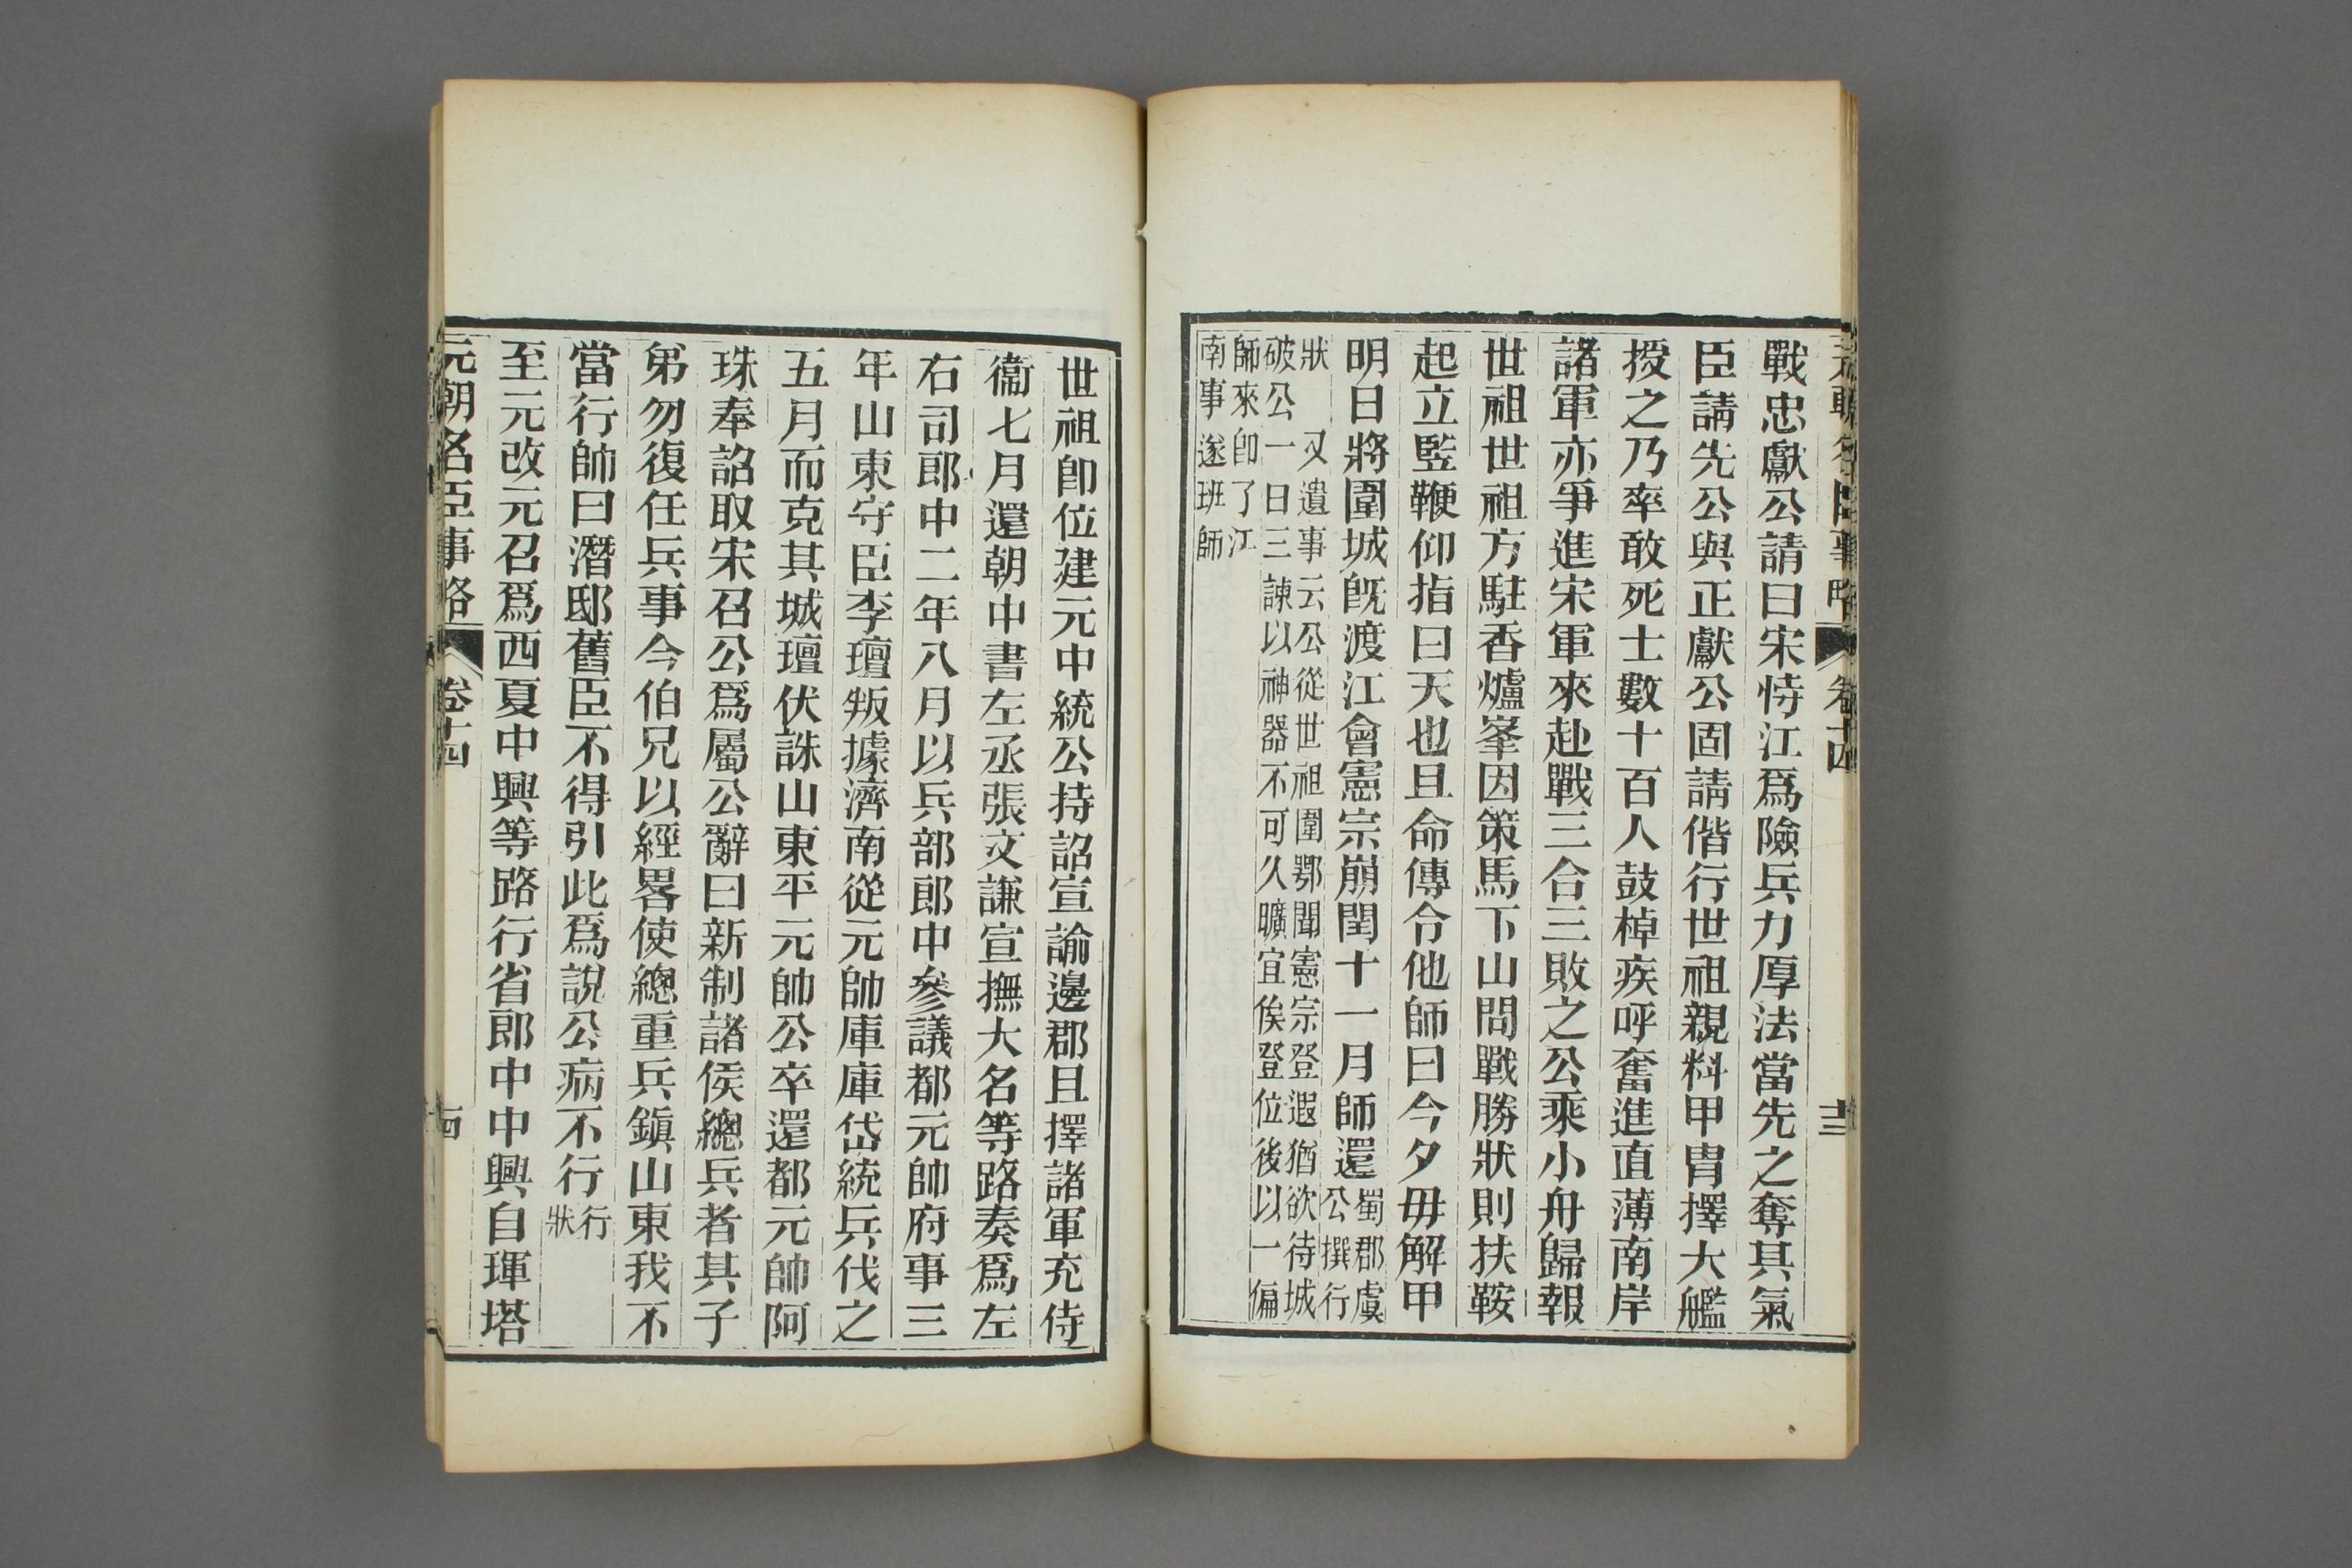 元朝名臣事略 卷十四 十三
戰忠獻公請曰宋恃江爲險兵力厚法當先之奪其氣
臣請先公與正獻公固請偕行世祖親料甲胄擇大艦
授之乃率敢死士數十百人鼓棹疾呼奮進直薄南岸
諸軍亦爭進宋軍來赴戰三合三敗之公乘小舟歸報
世祖世祖方駐香爐峯因策馬下山問戰勝狀則扶鞍
起立竪鞭仰指曰天也且命傳令他師曰今夕毋解甲
明日將圍城旣渡江會憲宗崩閏十一月師還蜀郡虞公撰行
狀 又遺事云公從世祖圍鄂聞憲宗登遐猶欲待城
破公一日三諫以神器不可久曠宜俟登位後以一偏
師來卽了江
南事遂班師
世祖卽位建元中統公持詔宣諭邊郡且擇諸軍充侍
衞七月還朝中書左丞張文謙宣撫大名等路奏爲左
右司郎中二年八月以兵部郎中參議都元帥府事三
年山東守臣李璮叛據濟南從元帥庫庫岱統兵伐之
五月而克其城璮伏誅山東平元帥公卒還都元帥阿
珠奉詔取宋召公爲屬公辭曰新制諸侯總兵者其子
弟勿復任兵事今伯兄以經畧使總重兵鎭山東我不
當行師曰潛邸舊臣不得引此爲說公病不行行狀
至元改元召爲西夏中興等路行省郎中中興自琿塔
元朝名臣事略 卷十四 十四